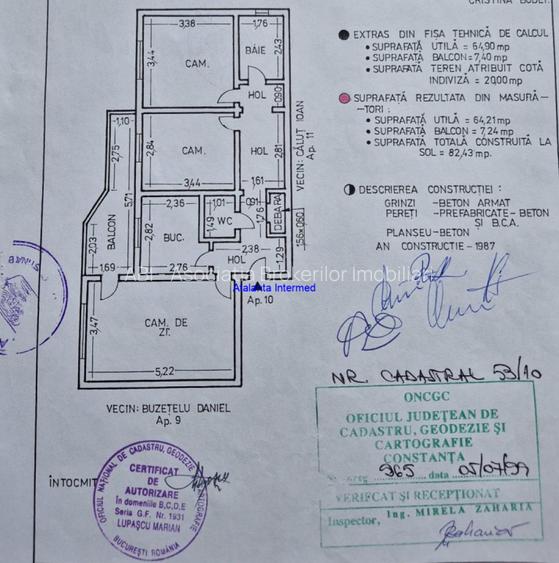 EXTRAS DIN FIȘA TEHNICĂ DE CALCUL
• SUPRAFAȚĂ UTILĂ = 64,90 mp
• SUPRAFAȚĂ BALCON = 7,40 mp
• SUPRAFAȚĂ TEREN ATRIBUIT COTĂ
INDIVIZĂ = 20,00 mp
SUPRAFAȚĂ REZULTATA DIN MASURĂ-
-TORI :
• SUPRAFAȚĂ UTILĂ = 64,21 mp
• SUPRAFAȚĂ BALCON = 7,24 mp
• SUPRAFAȚĂ TOTALĂ CONSTRUITĂ LA
SOL = 82,43 mp.
DESCRIEREA CONSTRUCȚIEI :
GRINZI -BETON ARMAT
PEREȚI -PREFABRICATE-BETON
ȘI B.C.A.
PLANȘEU-BETON
AN CONSTRUCTIE-1987
3,38
1,76
3,44
CAM.
BAIE
2,43
HOL
0,90
2,84
CAM.
3,44
HOL
2,81
1,61
VECIN: CĂLUȚ IOAN
Ap. 11
1,10
2,75
5,71
BALCON
2,03
1,69
2,36
2,82
BUC.
2,76
1,01
1,49
WC
0,91
1,76
DEBARA
1,56x0,60
2,38
HOL
1,29
Ap. 10
ABI - Asociatia Brokerilor Imobiliari
Atalanta Intermed
3,47
CAM. DE
ZI.
5,22
VECIN: BUZEȚELU DANIEL
Ap. 9
NR. CADASTRAL 53/10
ONCGC
OFICIUL JUDEȚEAN DE
CADASTRU, GEODEZIE ȘI
CARTOGRAFIE
CONSTANȚA
965 data 05/07/99
VERIFICAT ȘI RECEPȚIONAT
Inspector, Ing. MIRELA ZAHARIA
ÎNTOCMIT
OFICIUL NAȚIONAL DE CADASTRU, GEODEZIE ȘI CARTOGRAFIE
CERTIFICAT
DE
AUTORIZARE
În domeniile B,C,D,E
Seria G.F. Nr. 1931
LUPAȘCU MARIAN
BUCUREȘTI ROMÂNIA